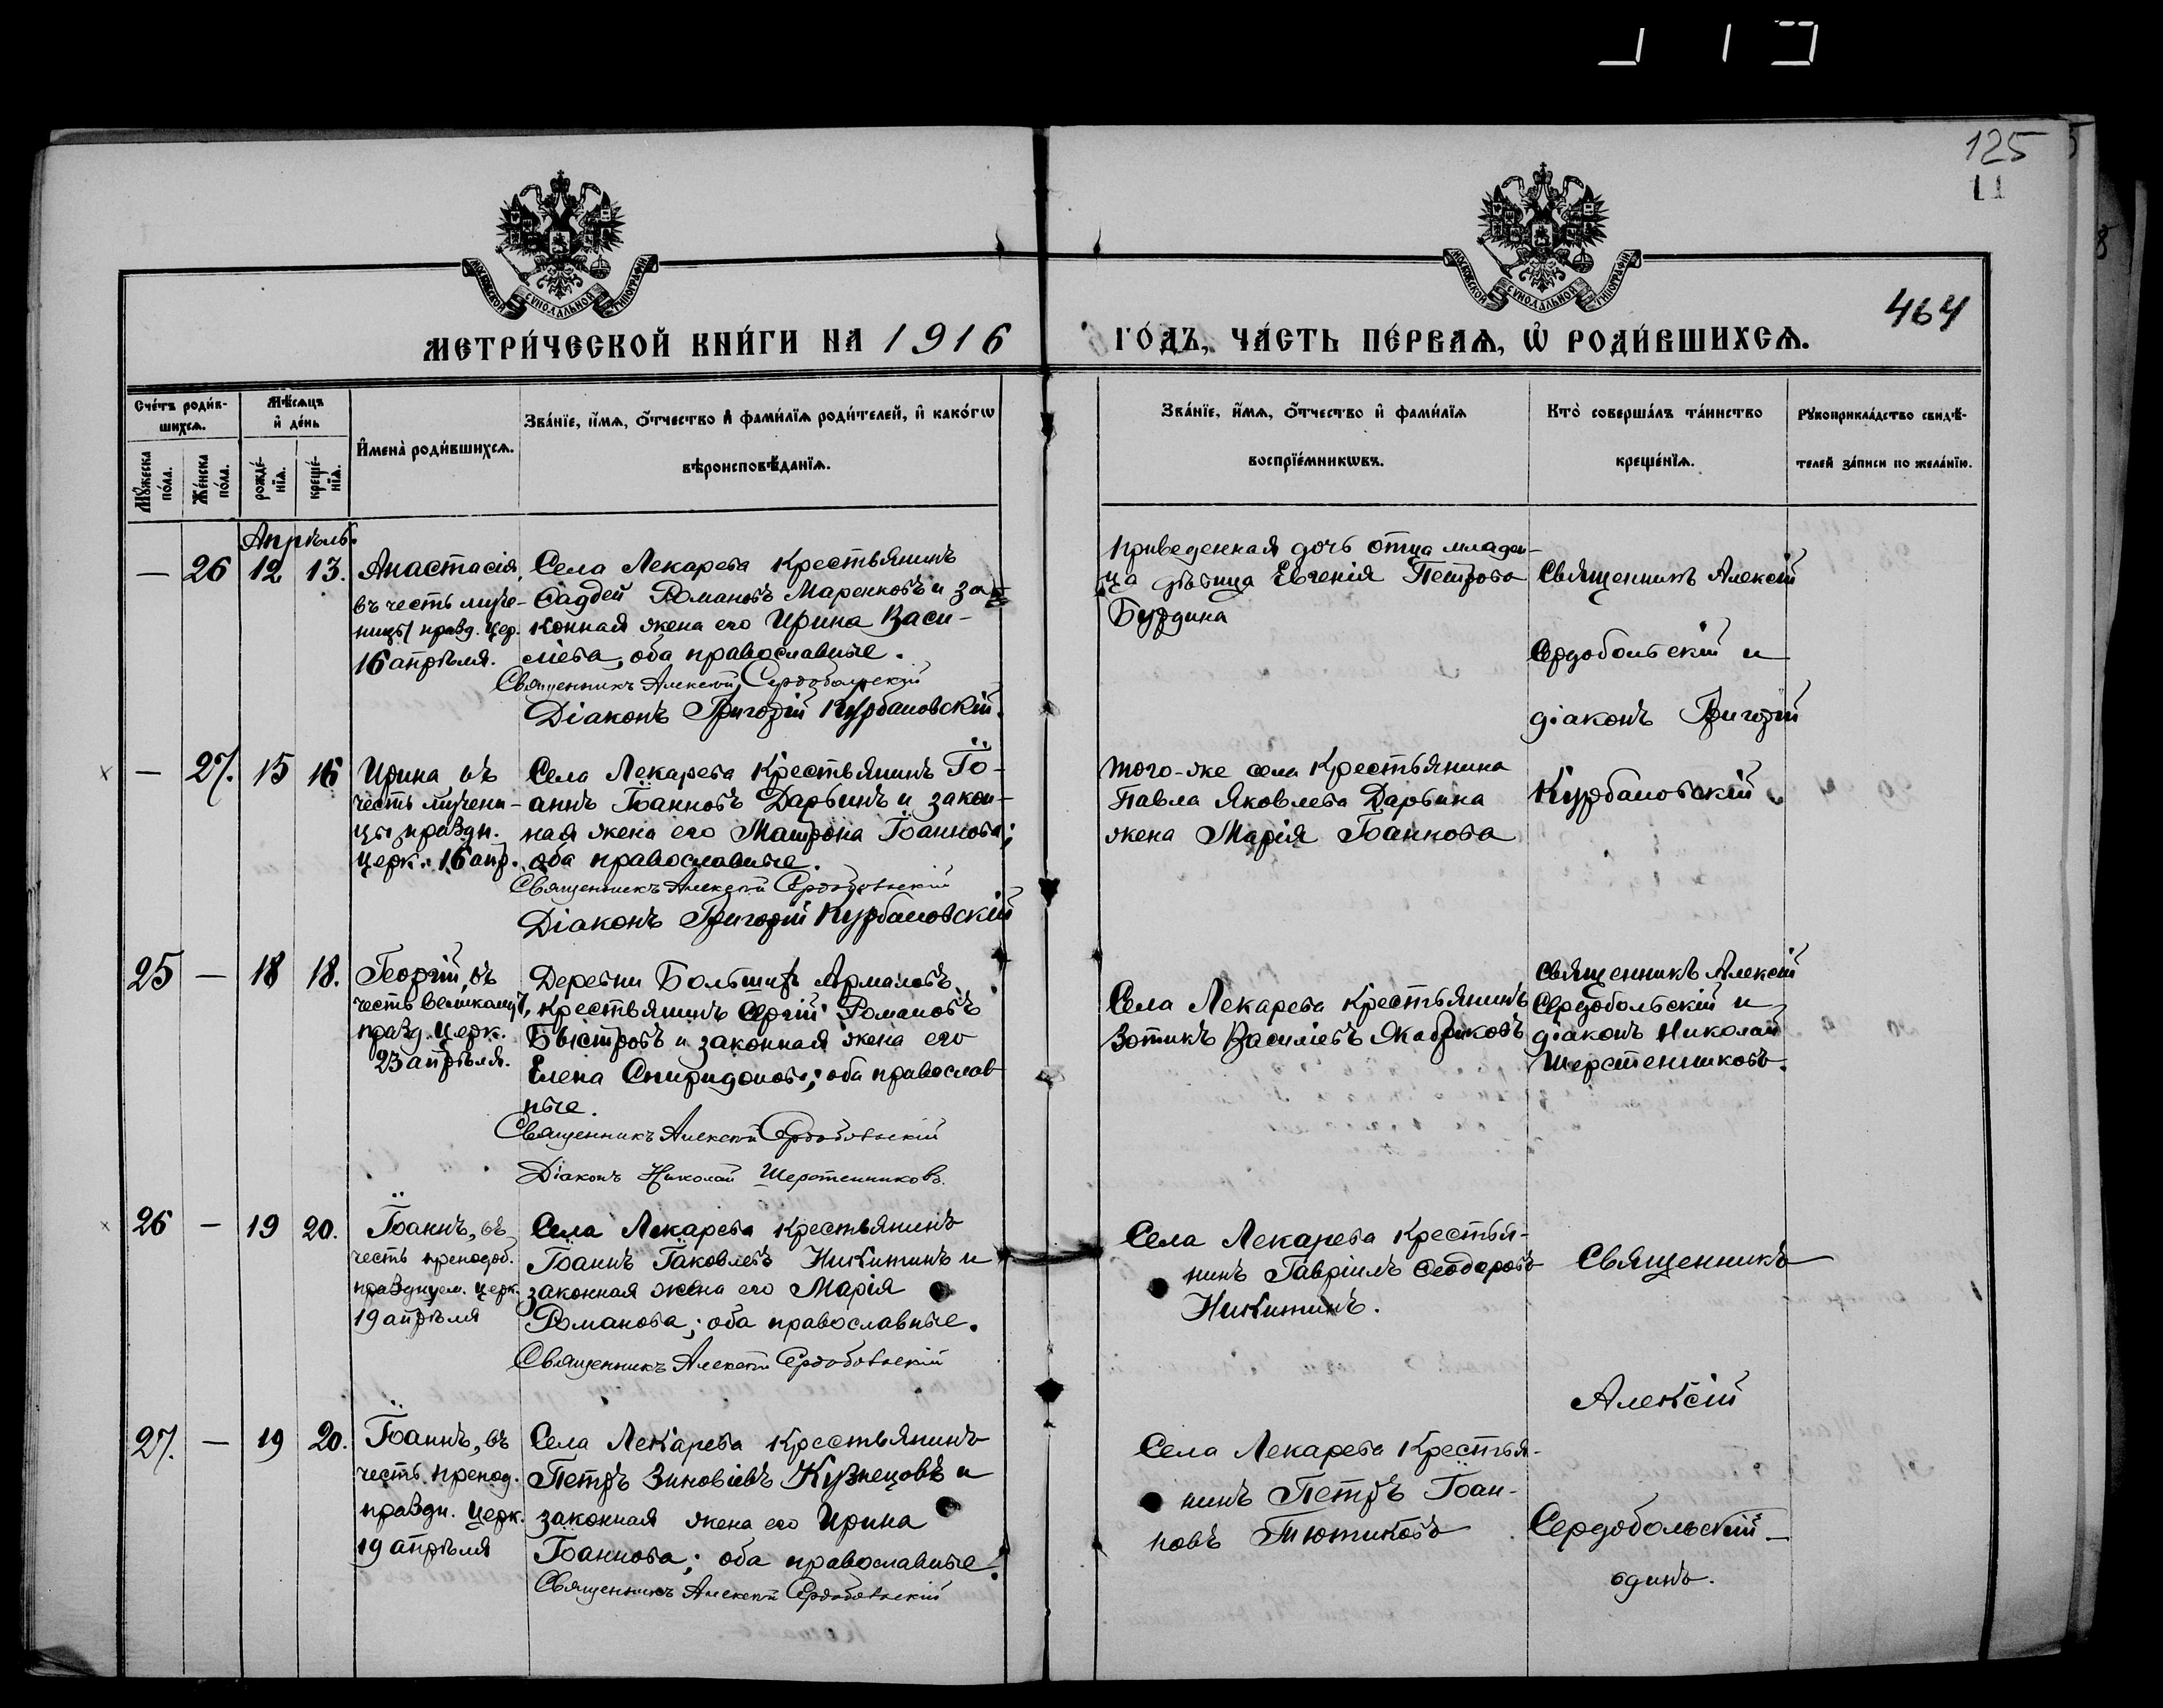 125
11
МОСКОВСКОЙ СѴНОДАЛЬНОЙ ТИПОГРАФІИ
МОСКОВСКОЙ СѴНОДАЛЬНОЙ ТИПОГРАФІИ
464
МЕТРИ́ЧЕСКОЙ КНИ́ГИ НА 1916
ГО́ДЪ, ЧА́СТЬ ПЕ́РВАѦ, Ѡ҆ РОДИ́ВШИХСѦ.
Сче́тъ роди́в-
шихсѧ.
Мѣ́сѧцъ
и҆ де́нь
И҆мена̀ роди́вшихсѧ.
Зва́нїе, и҆́мѧ, ѻ҆́тчество и҆ фами́лїѧ роди́телей, и҆ како́гѡ
вѣроисповѣ́данїѧ.
Мꙋ́жеска
по́ла.
Же́нска
по́ла.
рожде́-
нїѧ.
креще́-
нїѧ.
Зва́нїе, и҆́мѧ, ѻ҆́тчество и҆ фами́лїѧ
воспрїе́мникѡвъ.
Кто̀ соверша́лъ та́инство
креще́нїѧ.
Рꙋкоприкла́дство свидѣ́-
телей за́писи по жела́нїю.
Апрѣль.
— 26 12 13.
Анастасія,
въ честь муче-
ницы празд. цер.
16 апрѣля.
Села Лекарева крестьянинъ
Ѳаддей Романовъ Маренковъ и за-
конная жена его Ирина Васи-
лiева, оба православные.
Священникъ Алексѣй Сердобольскій
Діаконъ Григорій Курбановскій.
приведенная дочь отца младен-
ца дѣвица Евгенія Петрова
Бурдина
Священникъ Алексій
Сердобольскій и
діаконъ Григорій
Курбановскій.
— 27. 15 16
Ирина въ
честь мучени-
цы праздн.
церк. 16 апр.
Села Лекарева крестьянинъ Іо-
аннъ Іоанновъ Дарьинъ и закон-
ная жена его Матрона Іоаннова;
оба православные.
Священникъ Алексѣй Сердобольскій
Діаконъ Григорій Курбановскій
того-же села крестьянина
Павла Яковлева Дарьина
жена Марія Іоаннова
25 — 18 18.
Георгій, въ
честь великомуч.
празд. церк.
23 апрѣля.
Деревни Большихъ Армаловъ
крестьянинъ Сергій Романовъ
Быстровъ и законная жена его
Елена Спиридонова; оба православ
ные.
Священникъ Алексѣй Сердобольскій
Діаконъ Николай Шерстенниковъ.
Села Лекарева крестьянинъ
Зотикъ Василіевъ
Священникъ Алексій
Сердобольскій и
діаконъ Николай
Шерстенниковъ.
26 — 19 20.
Іоаннъ, въ
честь преподоб.
празднуем. церк.
19 апрѣля
Села Лекарева крестьянинъ
Іоаннъ Іаковлевъ Никитинъ и
законная жена его Марія
Романова; оба православные.
Священникъ Алексѣй Сердобольскій
Села Лекарева крестья-
нинъ Гавріилъ Ѳеодоровъ
Никитинъ.
Священникъ
Алексій
Сердобольскій —
одинъ.
27. — 19 20.
Іоаннъ, въ
честь препод.
праздн. церк.
19 апрѣля
Села Лекарева крестьянинъ
Петръ Зиновіевъ Кузнецовъ и
законная жена его Ирина
Іоаннова; оба православные.
Священникъ Алексѣй Сердобольскій
Села Лекарева крестья-
нинъ Петръ Іоан-
новъ Тютиковъ